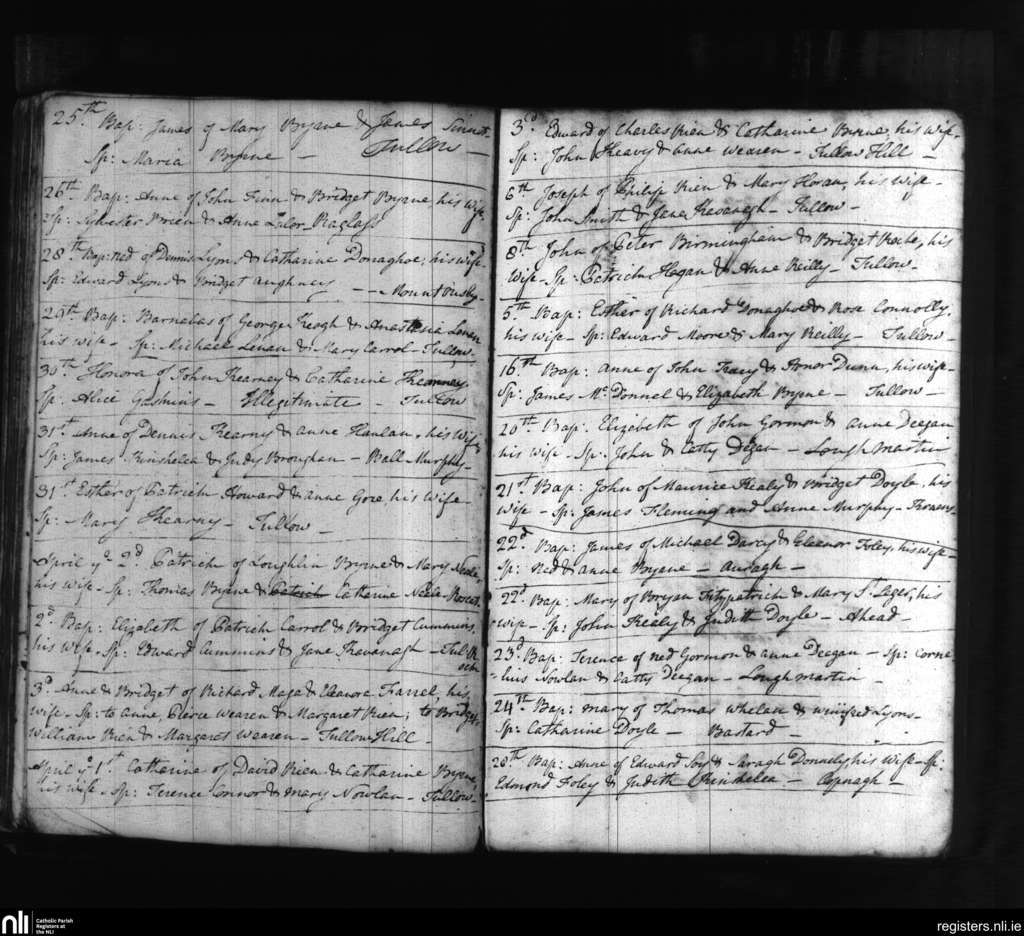 25th Bap: James of Mary Bryane & James Sinnot
Sp: Maria Bryne — Tullow —
26th Bap: Anne of John Finn & Bridget Bryane his wife
Sp: Sylvester Brien & Anne Lalor Raglass
28th Bap: Ned of Dennis Lyon & Catharine Donaghoe, his wife
Sp: Edward Lyons & Bridget Aughney — — Mount
29th Bap: Barnabas of George Keogh & Anastasia
his wife — Sp: Michael Linan & Mary Carrol — Tullow
30th Honora of John Kearney & Catharine
Sp: Alice Gaskins — Illegitimate — Tullow
31st Anne of Dennis Kearny & Anne Hanlan, his wife
Sp: James Kinshelea & Judy Broughan — Ball Murphy —
31st Esther of Patrick Howard & Anne Gore, his wife —
Sp: Mary Khearny — Tullow —
April ye 2d Patrick of Loughlin Bryne & Mary Neale,
his wife — Sp: Thomas Bryne & Patrick Catherine Neale
2d Bap: Elizabeth of Patrick Carrol & Bridget Cummins,
his wife — Sp: Edward Cummins & Jane Kavanagh —
3d Anne & Bridget of Richard Maga & Eleanora Farrel, his
wife — Sp: to Anne, Pierce Wearen & Margaret Rien; to Bridget,
William Rien & Margaret Wearen — Tullow Hill —
April ye 1st Catharine of David Rien & Catharine Bryne,
his wife — Sp: Terence Connor & Mary Nowlan — Tullow
3d Edward of Charles Rien & Catharine Byrne, his wife.
Sp: John Heavy & Anne Wearen — Tullow Hill —
6th Joseph of Philip Rien & Mary Horan, his wife —
Sp: John Smith & Jane Kavanagh — Tullow —
8th John of Peter Birmingham & Bridget Roche, his
wife — Sp: Patrick Hagan & Anne Reilly — Tullow —
5th Bap: Esther of Richard Donaghoe & Rose Connolly,
his wife — Sp: Edward Moore & Mary Reilly — Tullow
16th Bap: Anne of John Tracy & Honor Dunn, his wife —
Sp: James McDonnel & Elizabeth Bryne — Tullow —
20th Bap: Elizabeth of John Gormon & Anne Deegan
his wife — Sp: John & Catty Degan — Lough martin
21st Bap: John of Maurice Kealy & Bridget Doyle, his
wife — Sp: James Fleming and Anne Murphy —
22d Bap: James of Michael Darcy & Eleanor Foley, his wife —
Sp: Ned & Anne Bryane — Auragh —
22d Bap: Mary of Bryan Fitzpatrick & Mary St. Leger, his
wife — Sp: John Kealy & Judith Doyle — Ahead —
23d Bap: Terence of Ned Gormon & Anne Deegan — Sp: Corne-
lius Nowlan & Catty Deegan — Lough martin —
24th Bap: Mary of Thomas Whelan & Winifred Lyons —
Sp: Catharine Doyle — Bastard —
28th Bap: Anne of Edward Foy & Saragh Donnelly his wife — Sp:
Edmond Foley & Judith Kinshelea — Copnagh —
nli Catholic Parish
Registers at
the NLI
registers.nli.ie